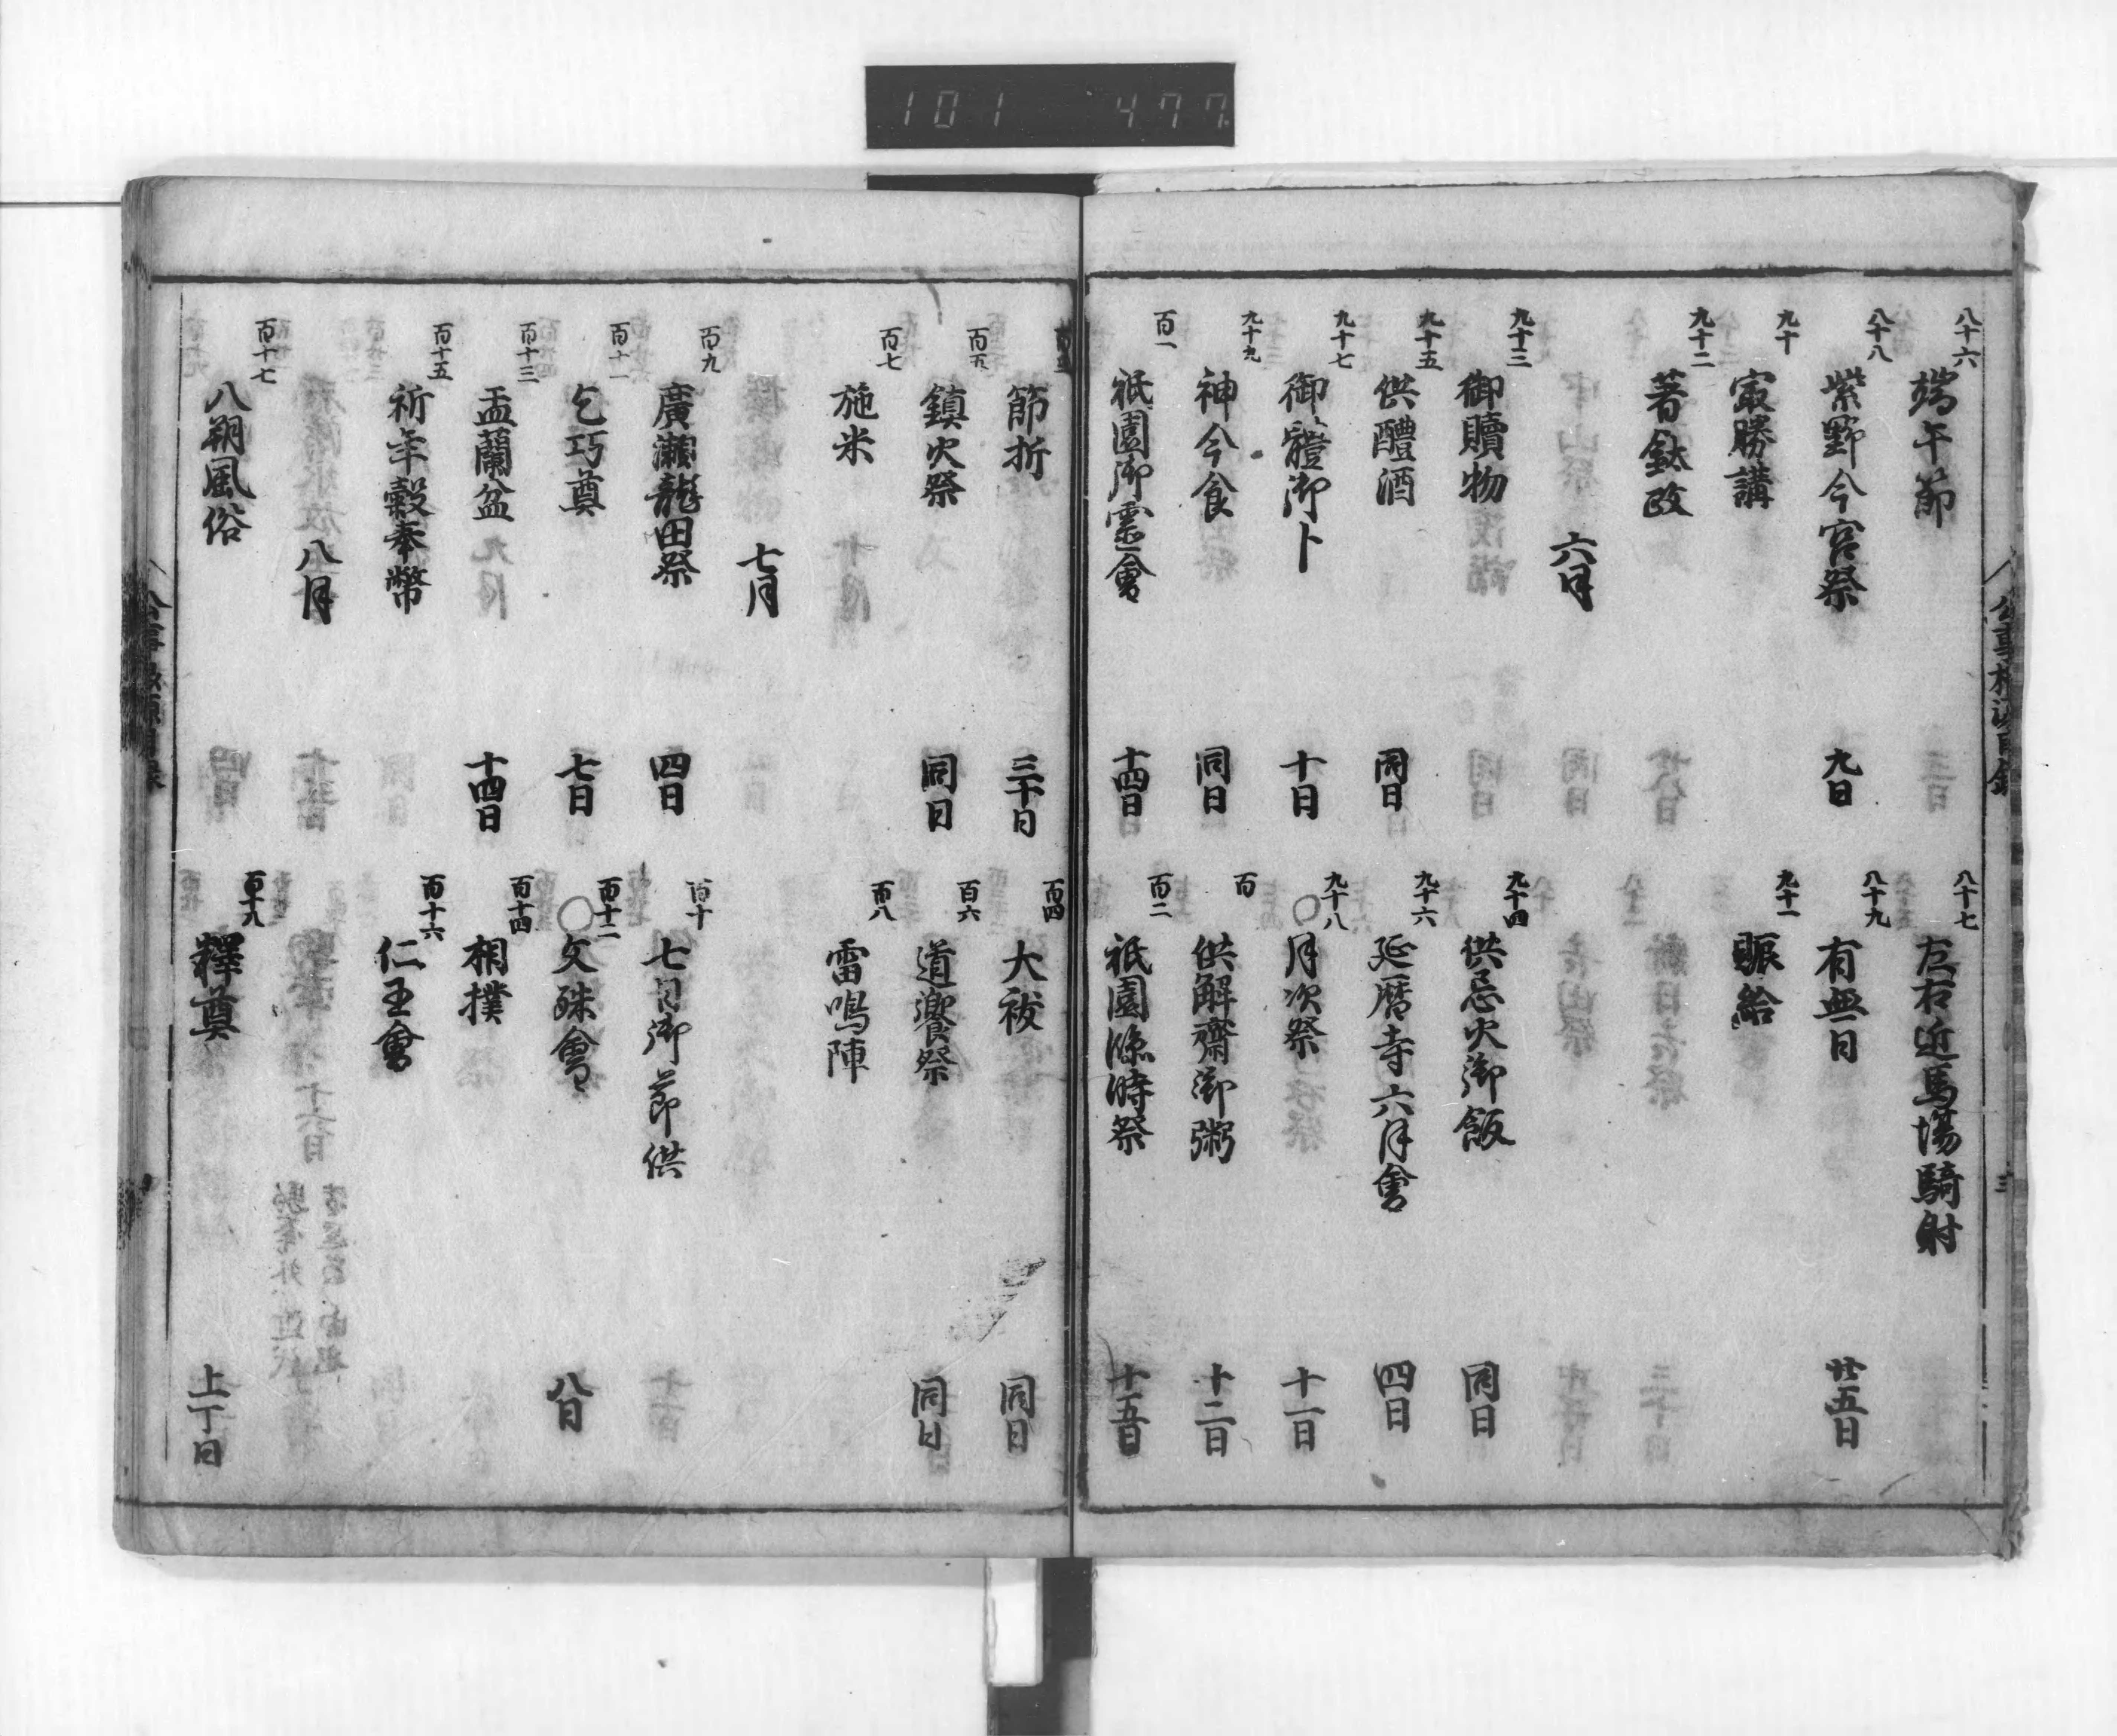 101 477
公事根源目録
三
八十六 端午節
八十七 左右近馬場騎射
八十八 紫野今宮祭 九日
八十九 有無日 廿五日
九十 㝡勝講
九十一 賑給
九十二 著釱政
六月
九十三 御贖物
九十四 供忌火御飯 同日
九十五 供醴酒 同日
九十六 延暦寺六月會 四日
九十七 御體御卜 十日
九十八 ○月次祭 十一日
九十九 神今食 同日
百 供解齋御粥 十二日
百一 祇園御霊會 十四日
百二 祇園臨時祭 十五日
百三 節折 三十日
百四 大祓 同日
百五 鎮火祭 同日
百六 道饗祭 同日
百七 施米
百八 雷鳴陣
七月
百九 廣瀬龍田祭 四日
百十 七日御節供
百十一 乞巧奠 七日
百十二 ○文殊會 八日
百十三 盂蘭盆 十四日
百十四 相撲
百十五 祈年穀奉幣
百十六 仁王會
八月
百十七 八朔風俗
百十八 釋奠 上丁日
公事根源目録